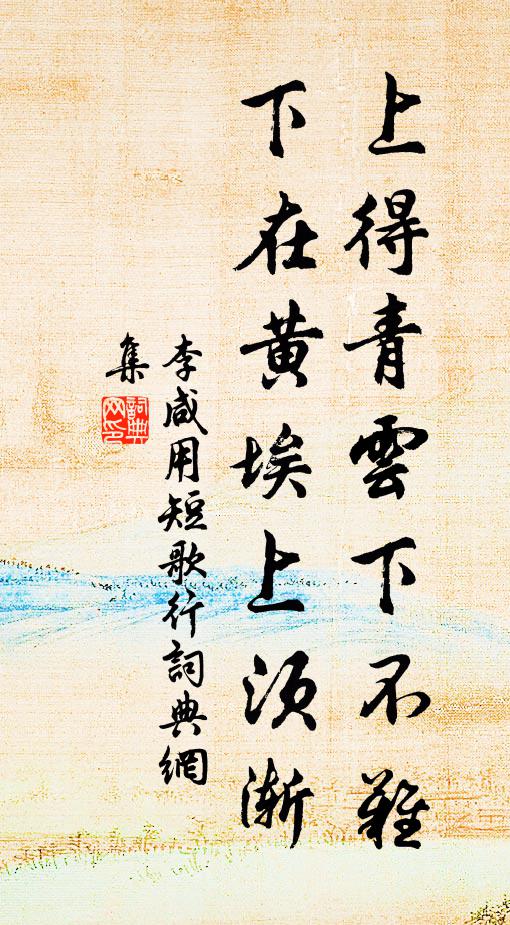 上得青雲下不難
下在黄埃上須漸
李咸用短歌行詞典網
集
詞典
网印